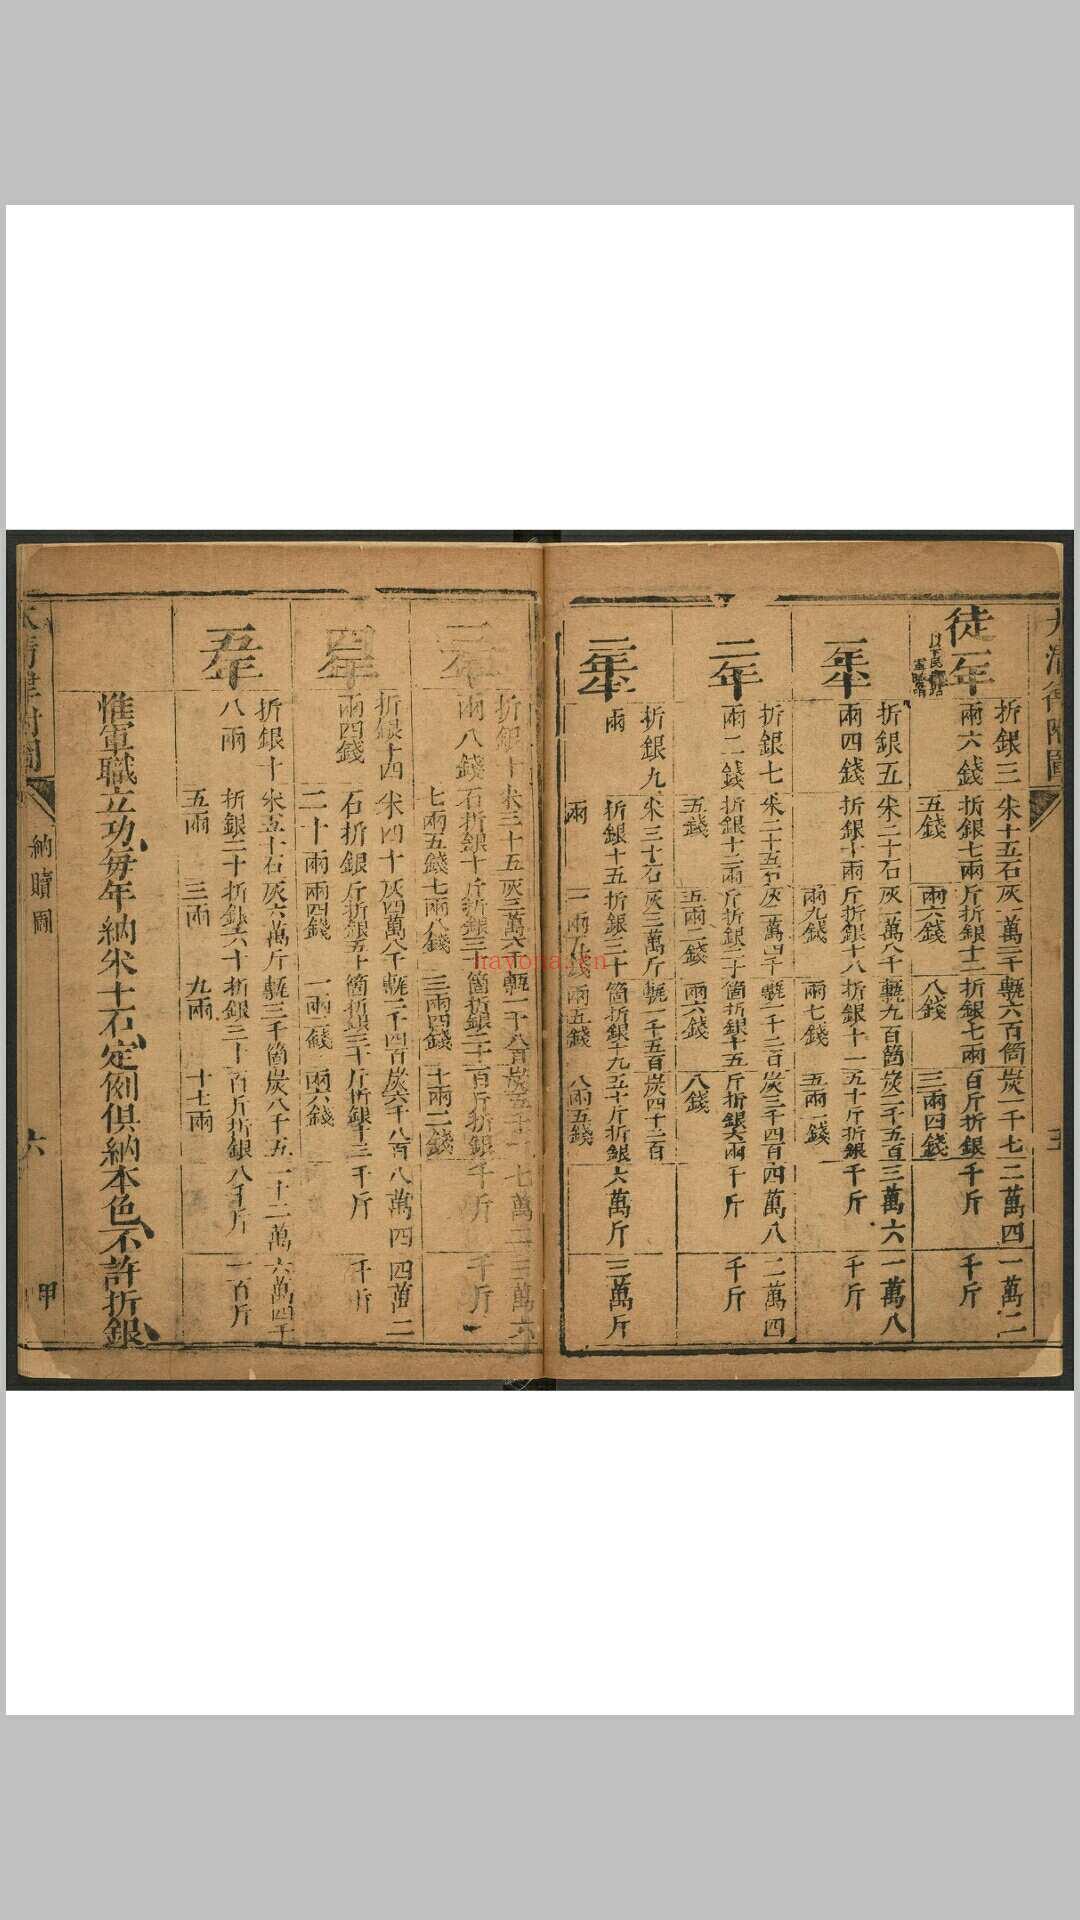 徒一年
折銀三
兩六錢
米十五石
折銀七兩
五錢
灰一萬二千
斤折銀十二
兩六錢
甎六百箇
折銀七兩
八錢
炭一千七
百斤折銀
三兩四錢
二萬四
千斤
一萬二
千斤
一年半
折銀五
兩四錢
米二十石
折銀十兩
灰一萬八千
斤折銀十八
兩九錢
甎九百箇
折銀十一
兩七錢
炭二千五百
五十斤折銀
五兩一錢
三萬六
千斤
一萬八
千斤
二年
折銀七
兩二錢
米二十五石
折銀十二兩
五錢
灰二萬四千
斤折銀二十
五兩二錢
甎一千二百
箇折銀十五
兩六錢
炭三千四百
斤折銀六兩
八錢
四萬八
千斤
二萬四
千斤
二年半
折銀九
兩
米三十石
折銀十五
兩
灰三萬斤
折銀三十
一兩五錢
甎一千五百
箇折銀十九
兩五錢
炭四千二百
五十斤折銀
八兩五錢
六萬斤
三萬斤
三年
折銀十
兩八錢
米三十五
石折銀十
七兩五錢
灰三萬六千
斤折銀三十
七兩八錢
甎一千八百
箇折銀二十
三兩四錢
炭五千一
百斤折銀
十兩二錢
七萬二
千斤
三萬六
千斤
四年
折銀十四
兩四錢
米四十
石折銀
二十兩
灰四萬八千
斤折銀五十
兩四錢
甎二千四百
箇折銀三十
一兩二錢
炭六千八百
斤折銀十三
兩六錢
八萬四
千斤
四萬二
千斤
五年
折銀十
八兩
米五十石
折銀二十
五兩
灰六萬斤
折銀六十
三兩
甎三千箇
折銀三十
九兩
炭八千五
百斤折銀
十七兩
一十二萬
八千斤
六萬四千
一百斤
惟軍職立功每年納米十石定例俱納本色不許折銀
納贖圖
六
甲
hayona.cn